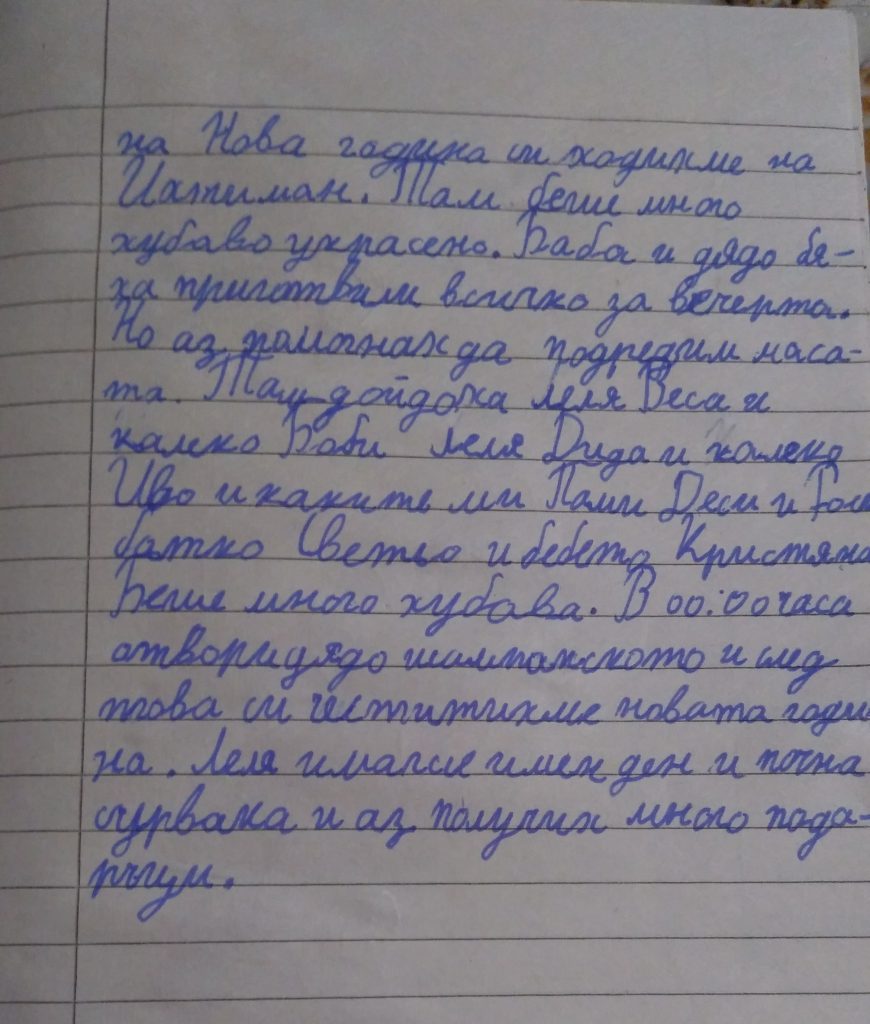 на Нова година си ходихме на
Ихтиман. Там беше много
хубаво украсено. Баба и дядо бя-
ха приготвили всичко за вечерта.
Но аз помогнах да подредим маса-
та. Там дойдоха леля Веса и
калеко Боби леля Диди и калеко
Иво и каките ми Пами Деси и
батко Светльо и бебето Кристяна
Беше много хубава. В 00:00 часа
отвори дядо шампанското и след
това си честитихме новата годи
на. Леля имаше имен ден и почна
сурвака и аз получих много пода-
ръци.